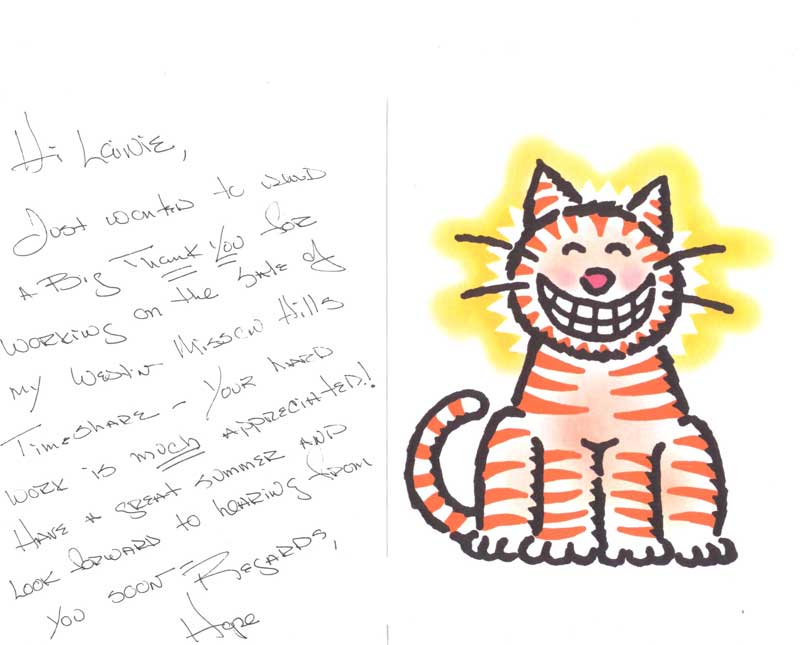 Hi Lainie,
Just wanted to send
a Big Thank You for
working on the sale of
my Westin Mission Hills
Timeshare - Your hard
work is much appreciated!
Have a great summer and
look forward to hearing from
you soon - Regards,
Hope